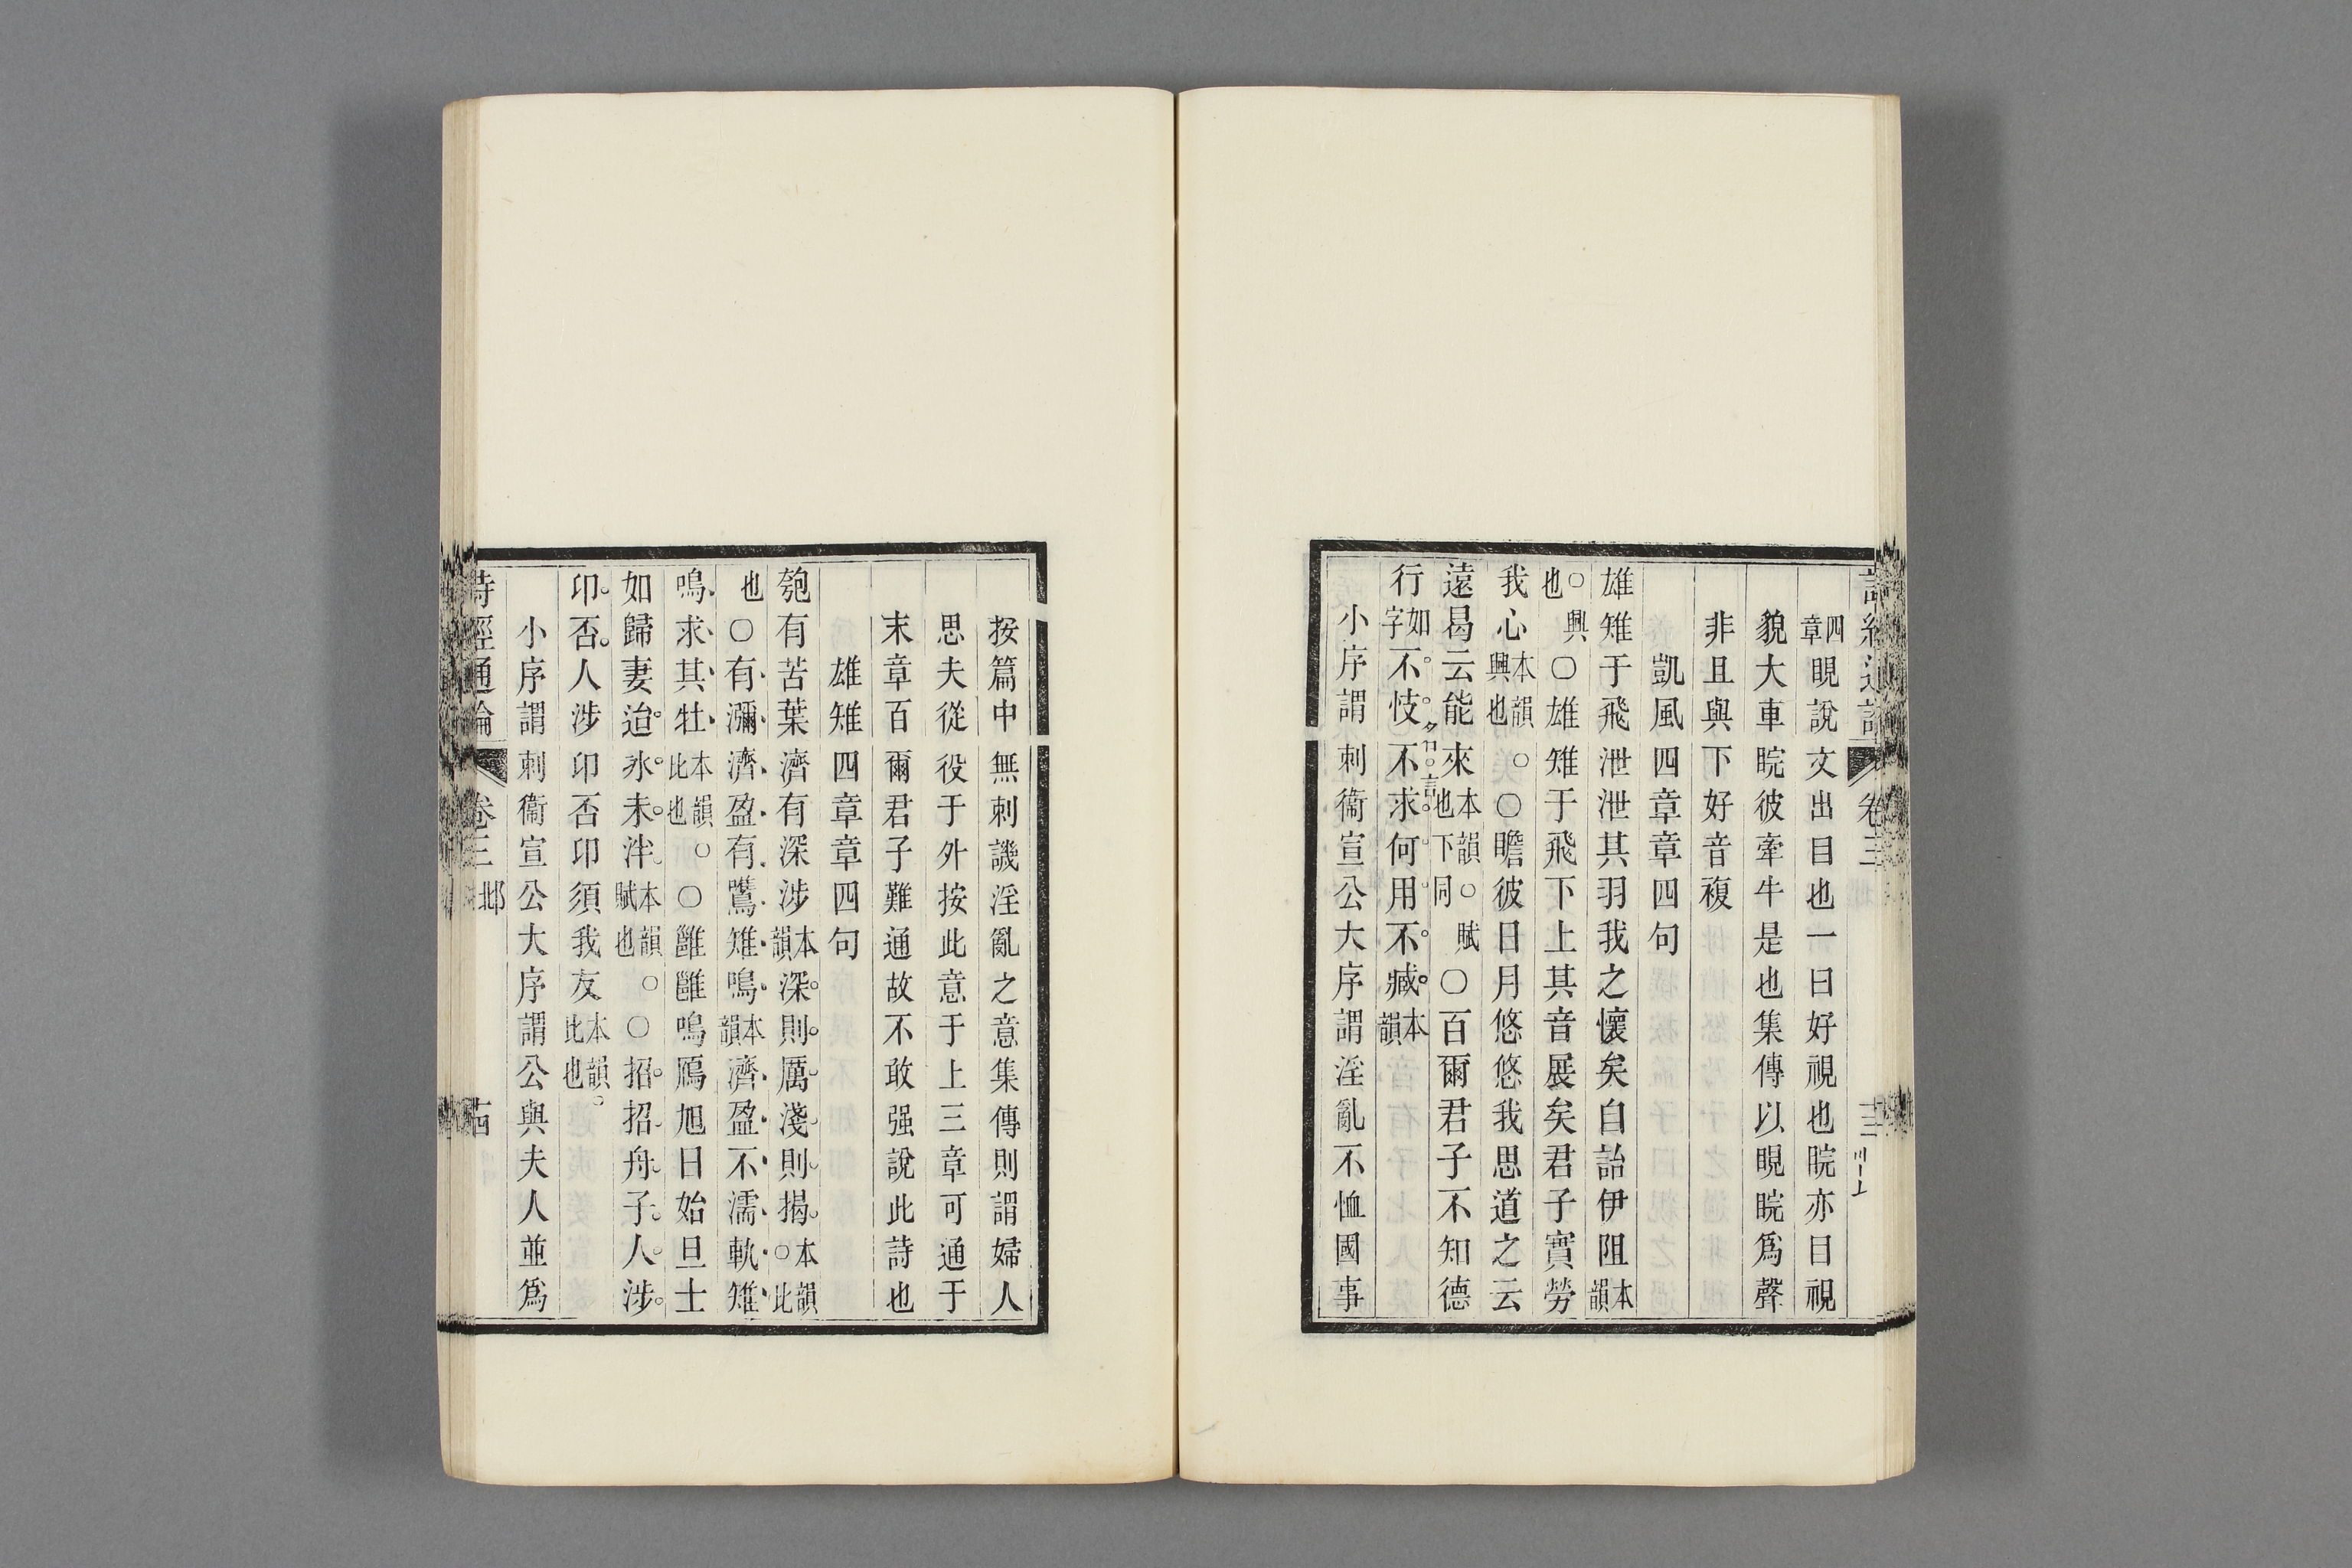 詩經通論 卷三 十三
四章睍說文出目也一曰好視也睆亦曰視
貌大車睆彼牽牛是也集傳以睍睆爲聲
非且與下好音複
凱風四章章四句
雄雉于飛泄泄其羽我之懷矣自詒伊阻本韻
○興也○雄雉于飛下上其音展矣君子實勞
我心本韻○興也○瞻彼日月悠悠我思道之云
遠曷云能來本韻○賦也下同○百爾君子不知德
行如字不忮不求何用不臧本韻
小序謂刺衞宣公大序謂淫亂不恤國事
按篇中無刺譏淫亂之意集傳則謂婦人
思夫從役于外按此意于上三章可通于
末章百爾君子難通故不敢强說此詩也
雄雉四章章四句
匏有苦葉濟有深涉本韻深則厲淺則揭本韻○比
也○有瀰濟盈有鷕雉鳴本韻濟盈不濡軌雉
鳴求其牡本韻○比也○雝雝鳴鴈旭日始旦士
如歸妻迨冰未泮本韻○賦也○招招舟子人涉
卬否人涉卬否卬須我友本韻○比也
小序謂刺衞宣公大序謂公與夫人並爲
詩經通論 卷三 邶 十四